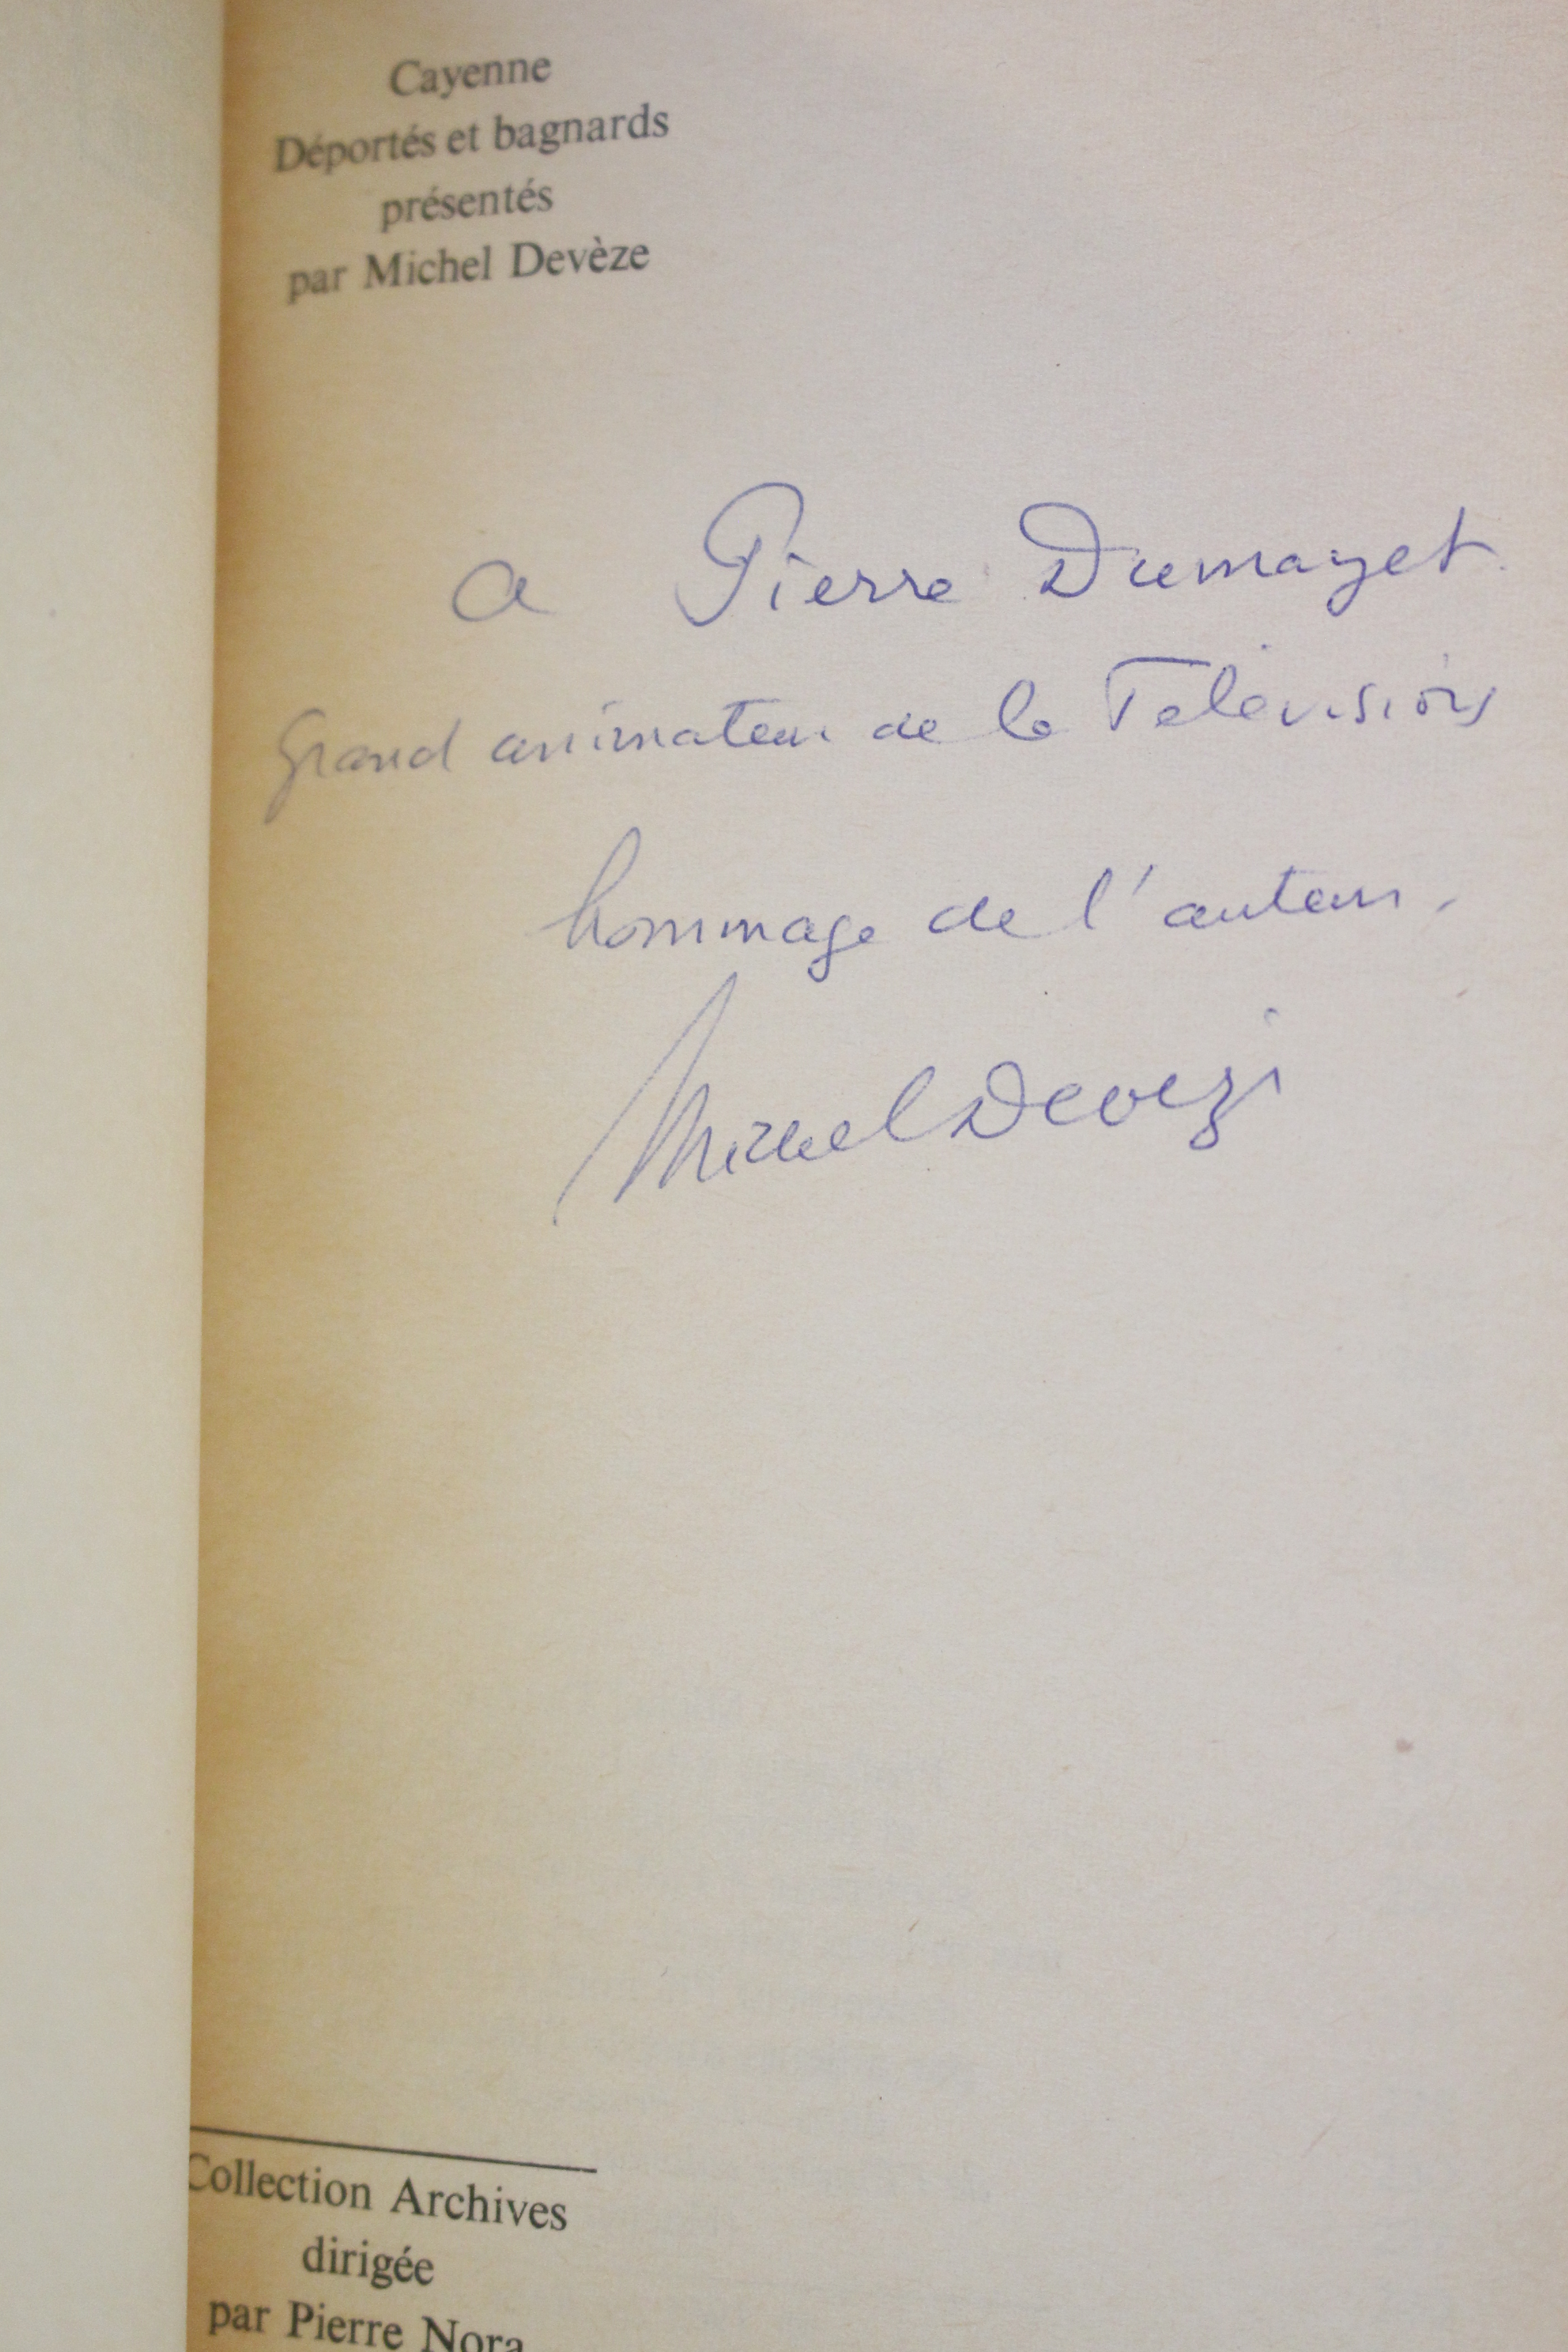 Cayenne
Déportés et bagnards
présentés
par Michel Devèze
a Pierre Dumayet
Grand animateur de la Télévision
hommage de l'auteur.
Michel Devèze
Collection Archives
dirigée
par Pierre Nora